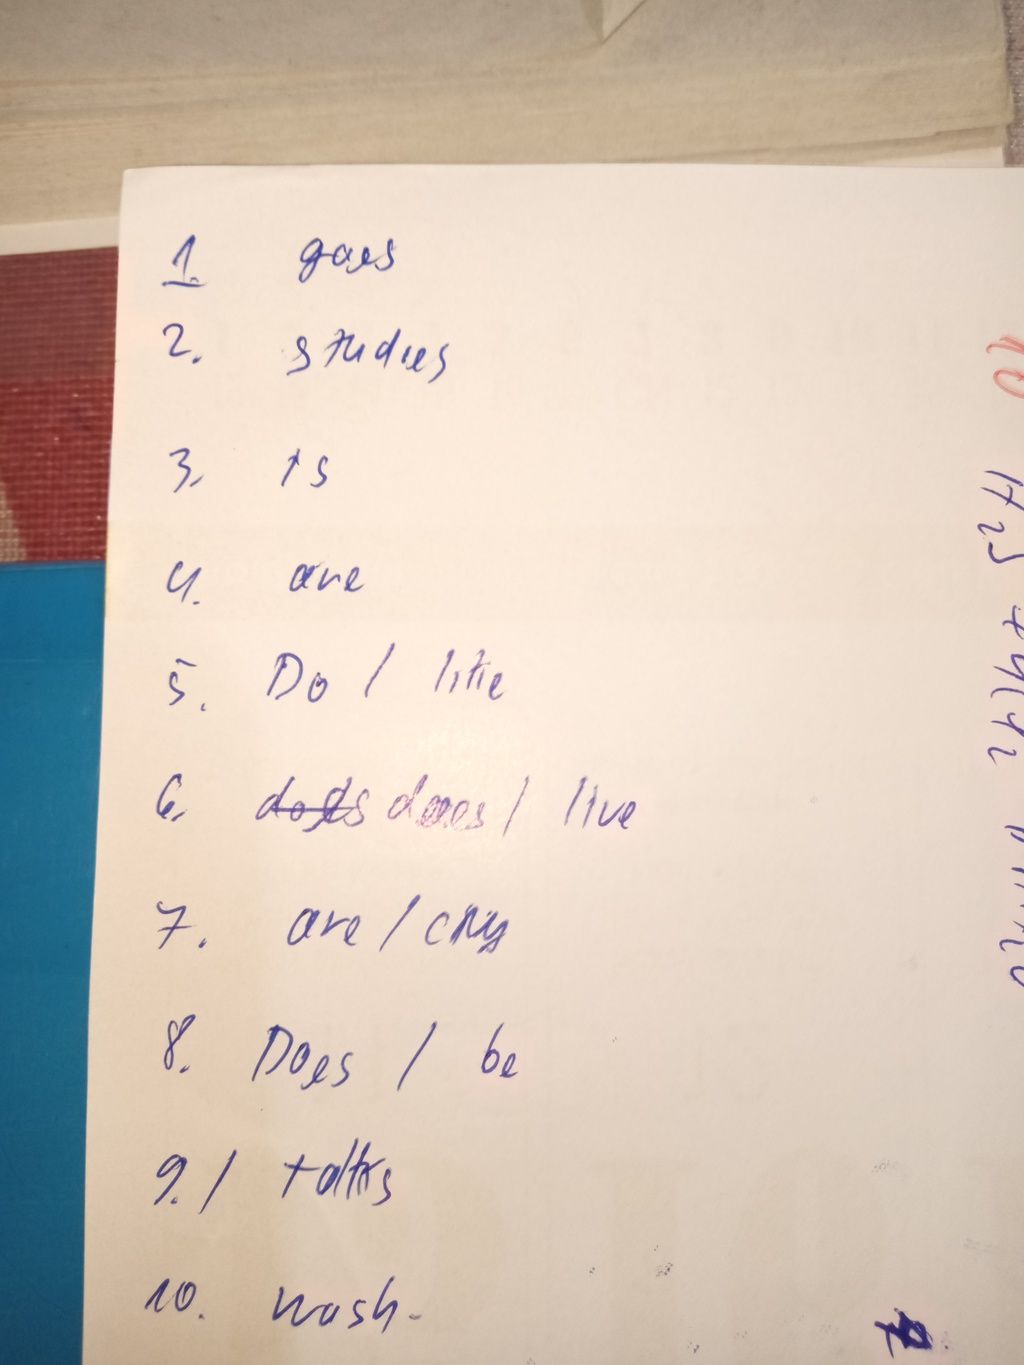 1. goes
2. studies
3. is
4. are
5. Do / like
6. does / live
7. are / cry
8. Does / be
9. / talks
10. wash.
10
H2S +